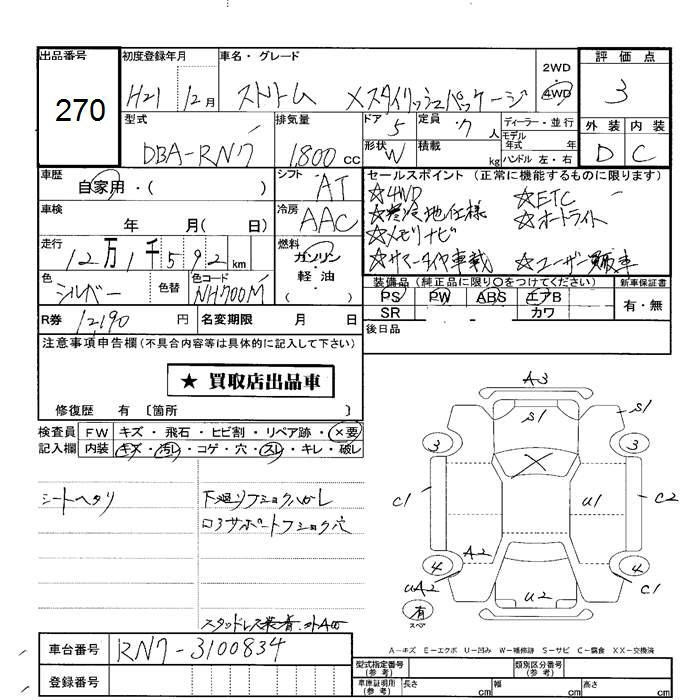 出品番号 初度登録年月 車名・グレード 評価点
270 H21 12月 ストリーム Xスタイリッシュパッケージ 2WD 4WD 3
型式 排気量 ドア 定員 ディーラー・並行 外装 内装
DBA-RN7 1,800 cc 5 7 人 モデル年式 年
形状 W 積載 kg ハンドル 左・右 D C
車歴 自家用・( ) シフト AT セールスポイント (正常に機能するものに限ります)
☆4WD ☆ETC
車検 年 月( 日) 冷房 AAC ☆寒冷地仕様 ☆オートライト
☆メモリナビ
走行 12万1千592 km 燃料 ガソリン 軽油 ☆サマータイヤ車載 ☆ユーザー買取車
色 シルバー 色替 色コード NH700M 装備品 (純正品に限り○をつけてください) 新車保証書
PS PW ABS エアB 有・無
SR カワ
R券 12190 円 名変期限 月 日 後日品
注意事項申告欄 (不具合内容等は具体的に記入して下さい)
★ 買取店出品車
修復歴 有 〔箇所 〕
検査員 FW キズ・飛石・ヒビ割・リペア跡・×要
記入欄 内装 キズ・汚レ・コゲ・穴・スレ・キレ・破レ
シートヘタリ 下廻リフショクハガレ
ロアサポートフショク穴
A3
S1 S1
3 3
C1 U1 C2
A2
4 4
UA2 U2 C1
有
スペア
A―キズ E―エクボ U―凹み W―補修跡 S―サビ C―腐食 XX―交換済
車台番号 RN7-3100834
登録番号
型式指定番号 (参考) 類別区分番号 (参考)
車庫証明用 (参考) 長さ cm 幅 cm 高さ cm